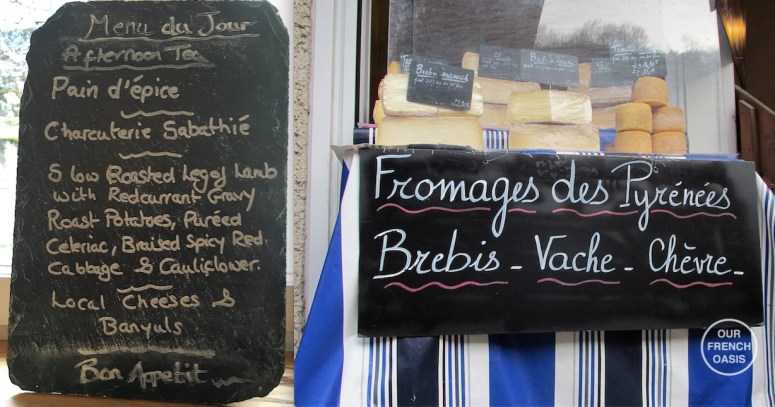 Menu du Jour
Afternoon Tea
Pain d'épice
Charcuterie Sabathié
Slow Roasted Leg of Lamb
with Redcurrant Gravy
Roast Potatoes, Puréed
Celeriac, Braised Spicy Red
Cabbage & Cauliflower.
Local Cheeses &
Banyuls
Bon Appetit
Brebis
Fromages des Pyrénées
Brebis - Vache - Chèvre -
OUR
FRENCH
OASIS